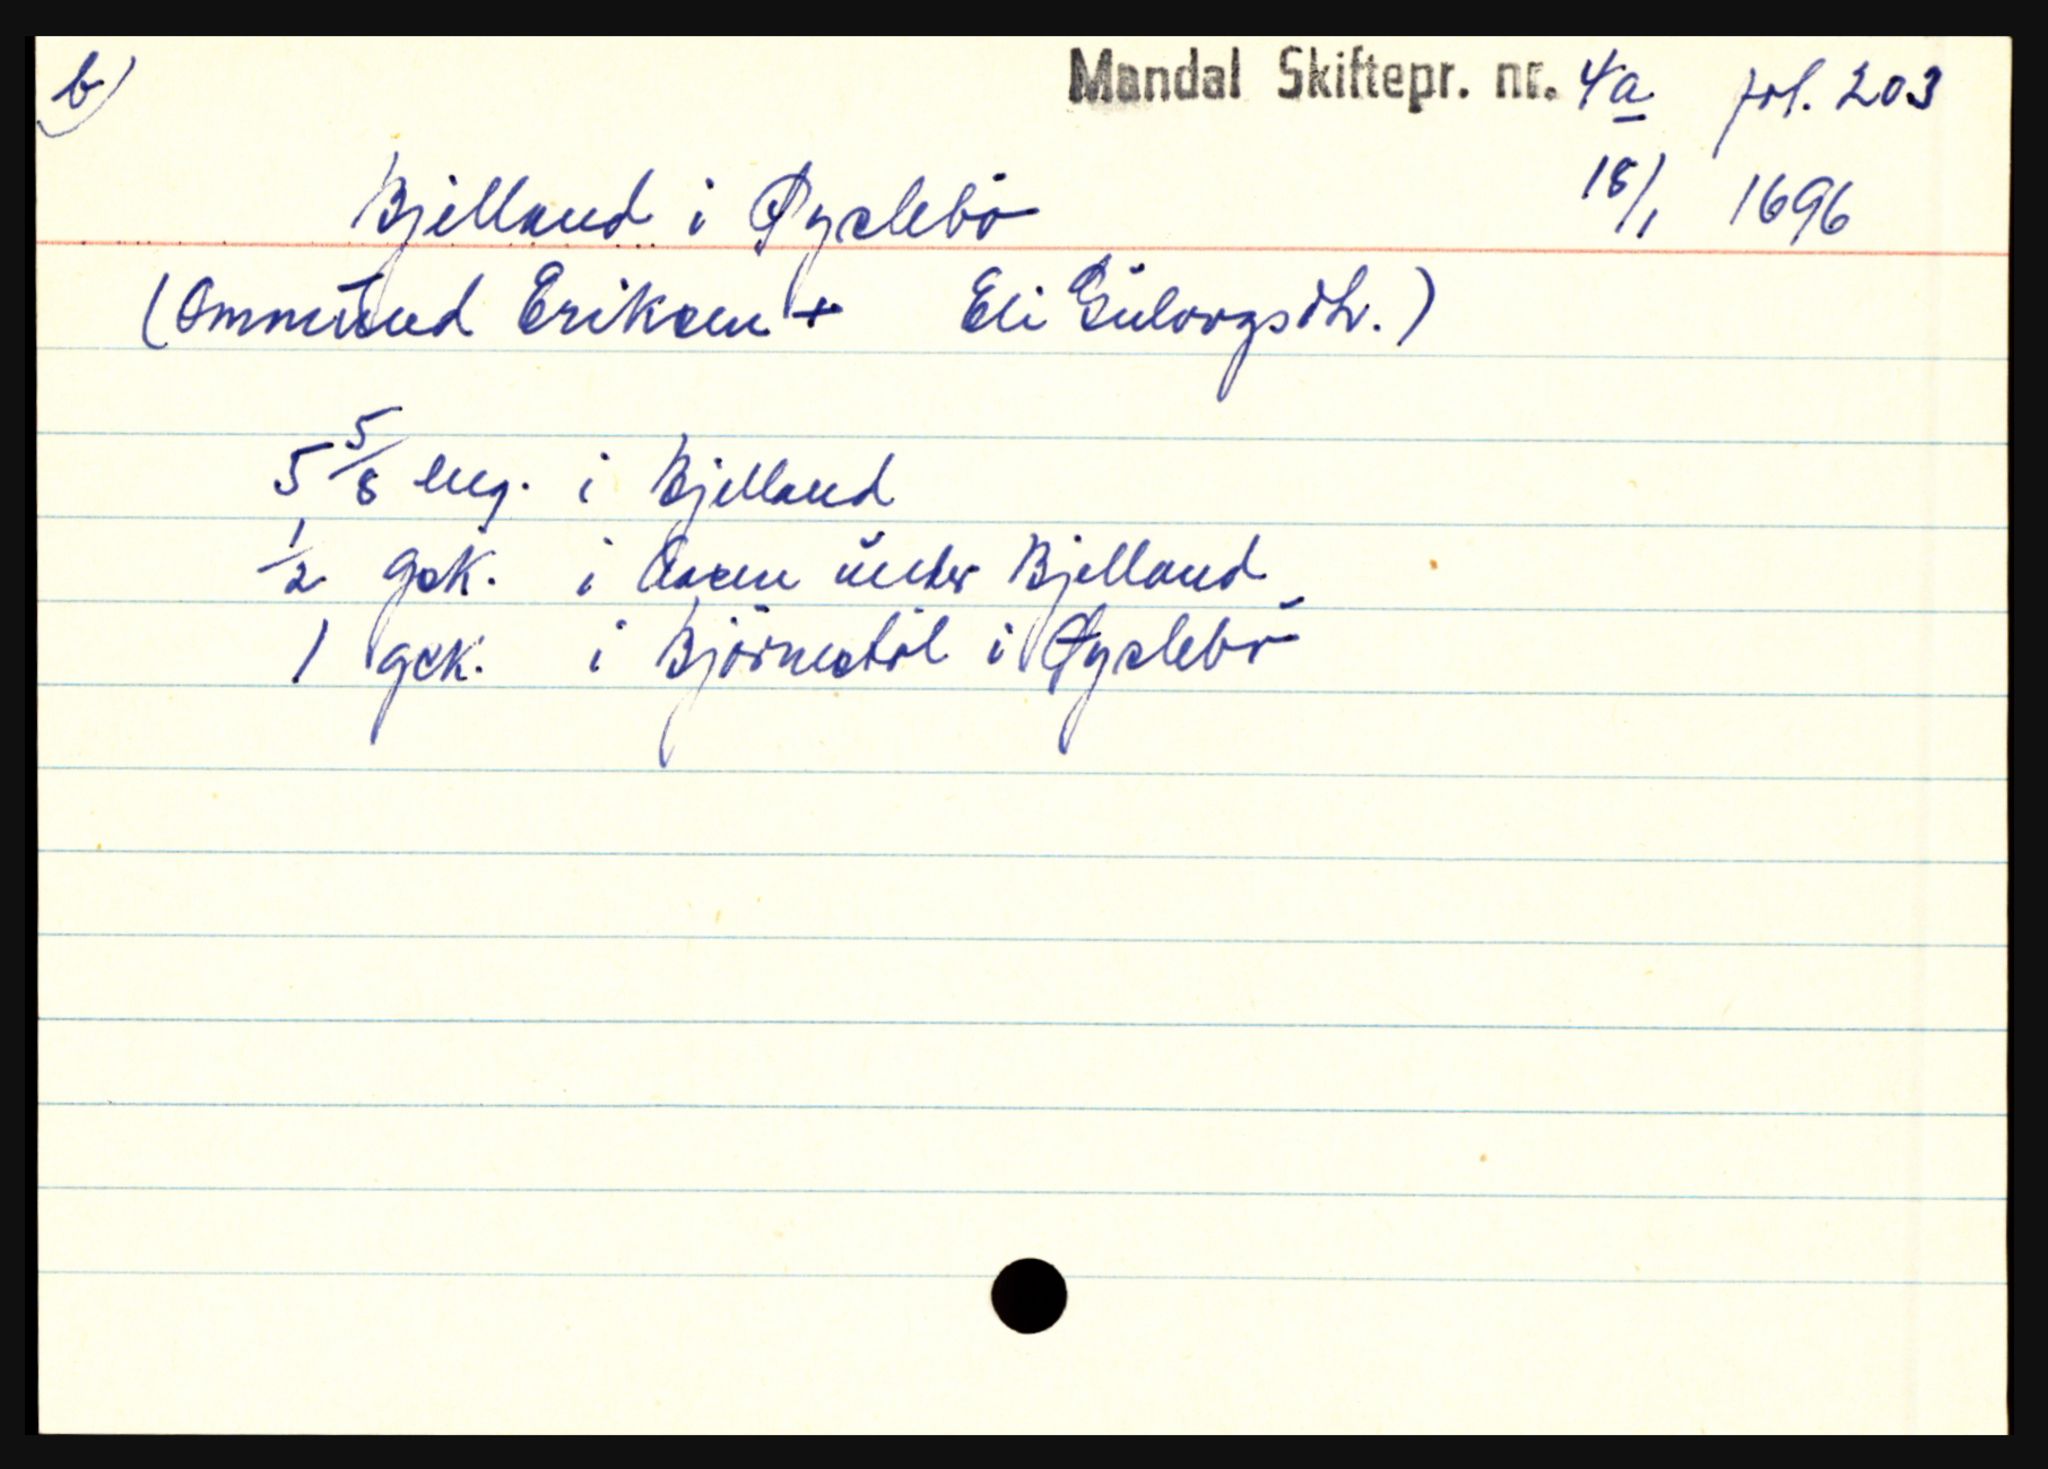 b) Mandal Skiftepr. nr. 4a fol. 203
Bjelland i Øyslebö 18/1 1696
(Ommund Eriksen + Eli Gulovgsdtr.)
5 5/8 eng. i Bjelland
1/2 gsk. i Aasen under Bjelland
1 gsk. i Björnestöl i Øyslebö